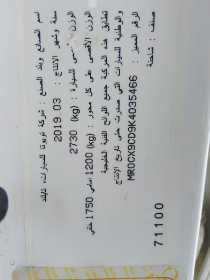 اسم الصانع وبلد الصنع : شركة تويوتا للسيارات، تايلاند
سنة وشهر الانتاج : 2019.03
الوزن الأقصى للسيارة : (kg) 2730
الوزن الأقصى على كل محور : (kg) 1200 أمامي 1750 خلفي
تطابق هذه المركبة جميع اللوائح الفنية الخليجية
والوطنية للسيارات التي صدرت حتى تاريخ الانتاج
الرقم المميز : MR0CX9CD9K4035466
صنف : شاحنة
71100